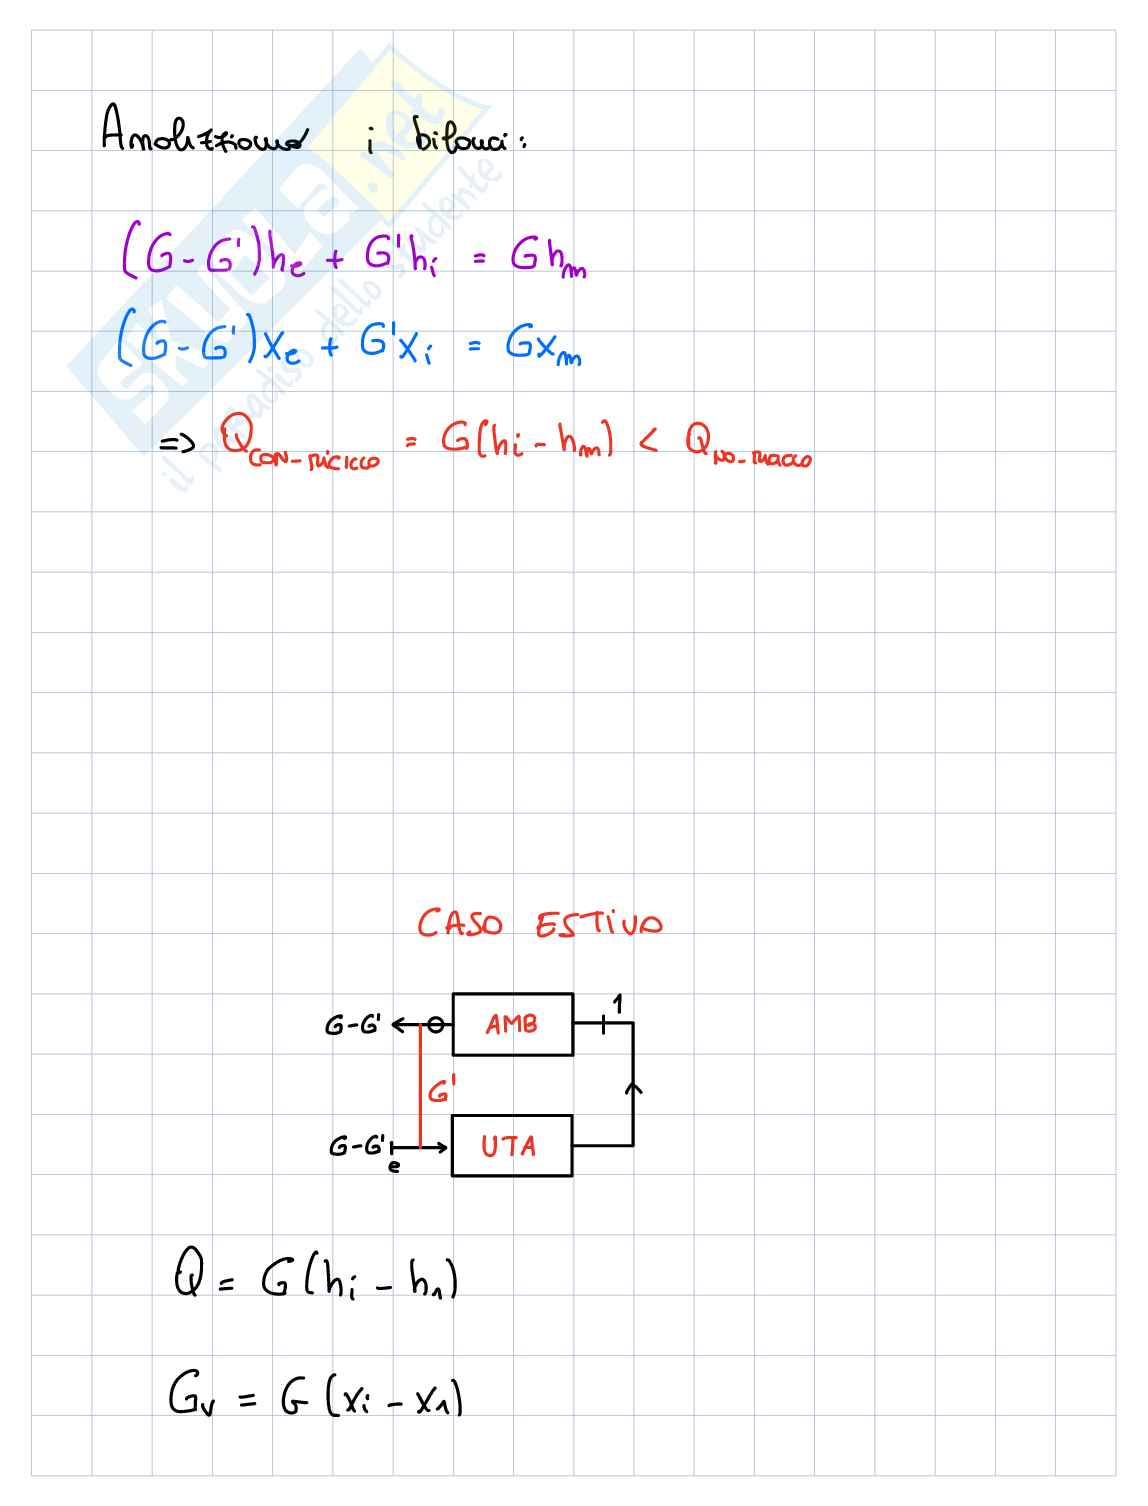 Analizziamo i bilanci:
(G-G')he + G'hi = Ghm
(G-G')xe + G'xi = Gxm
=> Q CON-RICICLO = G(hi-hm) < Q NO-RICICLO
SKUOLA.net
il paradiso dello studente
CASO ESTIVO
1
G-G' AMB
G'
G-G' UTA
e
Q = G(hi - h1)
Gv = G(xi - x1)